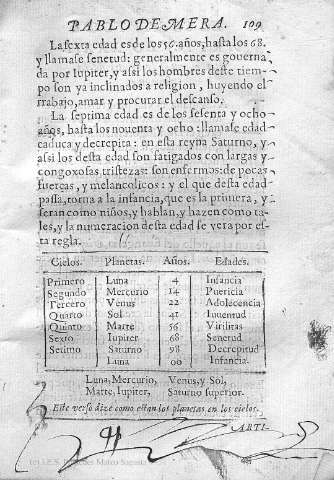 PABLO DE MERA. 109
La sexta edad es de los 56. años, hasta los 68.
y llamase senetud: generalmente es gouerna
da por Iupiter, y assi los hombres deste tiem-
po son ya inclinados a religion, huyendo el
trabajo, amar y procurar el descanso.
La septima edad es de los sesenta y ocho
años, hasta los nouenta y ocho: llamase edad
caduca y decrepita: en esta reyna Saturno, y
assi los desta edad son fatigados con largas y
congoxosas tristezas: son enfermos: de pocas
fuerças, y melancolicos: y el que desta edad
passa, torna a la infancia, que es la primera, y
seran como niños, y hablan, y hazen como ta-
les, y la numeracion desta edad se vera por es-
ta regla.
Cielos. Planetas. Años. Edades.
Primero Luna 4 Infancia
Segundo Mercurio 14 Puericia
Tercero Venus 22 Adolecencia
Quarto Sol 41 Iuuentud
Quinto Marte 56 Virilitas
Sexto Iupiter 68 Senetud
Setimo Saturno 98 Decrepitud
Luna 00 Infancia.
Luna, Mercurio, Venus, y Sol,
Marte, Iupiter, Saturno superior.
Este verso dize como estan los planetas en los cielos.
ARTI-